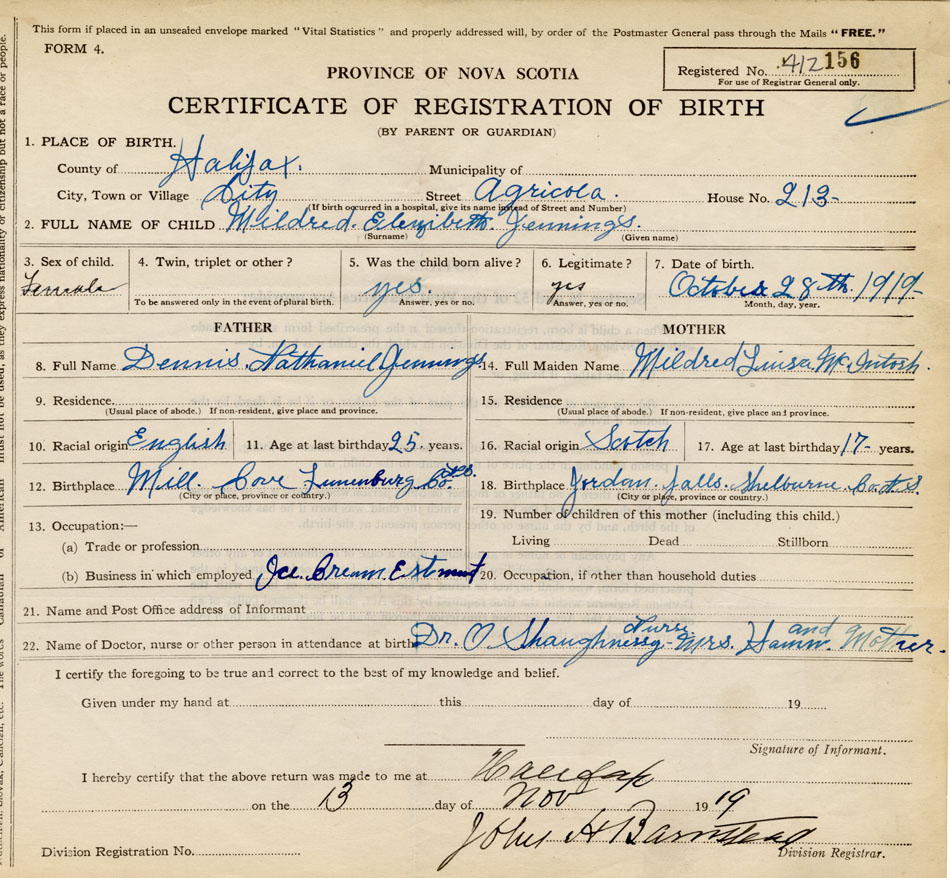 This form if placed in an unsealed envelope marked "Vital Statistics" and properly addressed will, by order of the Postmaster General pass through the Mails "FREE."
FORM 4.
PROVINCE OF NOVA SCOTIA
Registered No. 412156
For use of Registrar General only.
CERTIFICATE OF REGISTRATION OF BIRTH
(BY PARENT OR GUARDIAN)
1. PLACE OF BIRTH.
County of Halifax. Municipality of
City, Town or Village City Street Agricola. House No. 213-
(If birth occurred in a hospital, give its name instead of Street and Number)
2. FULL NAME OF CHILD Mildred. Elezibeth. Jennings.
(Surname) (Given name)
3. Sex of child. 4. Twin, triplet or other? 5. Was the child born alive? 6. Legitimate? 7. Date of birth.
Female yes. yes October 28th. 1919-
To be answered only in the event of plural birth. Answer, yes or no. Answer, yes or no. Month, day, year.
FATHER MOTHER
8. Full Name Dennis. Nathaniel Jennings. 14. Full Maiden Name Mildred Luisa Mc. Intosh.
9. Residence. 15. Residence
(Usual place of abode.) If non-resident, give place and province. (Usual place of abode.) If non-resident, give place and province.
10. Racial origin English 11. Age at last birthday 25. years. 16. Racial origin Scotch 17. Age at last birthday 17- years.
12. Birthplace Mill. Cove Lunenburg Co. N.S. 18. Birthplace Jordan. Falls. Shelburne. Co. N.S.
(City or place, province or country.) (City or place, province or country.)
13. Occupation:— 19. Number of children of this mother (including this child.)
(a) Trade or profession Living Dead Stillborn
(b) Business in which employed Ice. Cream. Estment 20. Occupation, if other than household duties
21. Name and Post Office address of Informant
22. Name of Doctor, nurse or other person in attendance at birth Dr. O. Shaughnessy- Nurse Mrs. Hamm. and Mother-
I certify the foregoing to be true and correct to the best of my knowledge and belief.
Given under my hand at this day of 19
Signature of Informant.
I hereby certify that the above return was made to me at Halifax
on the 13 day of Nov 1919
John H Barnstead
Division Registration No. Division Registrar.